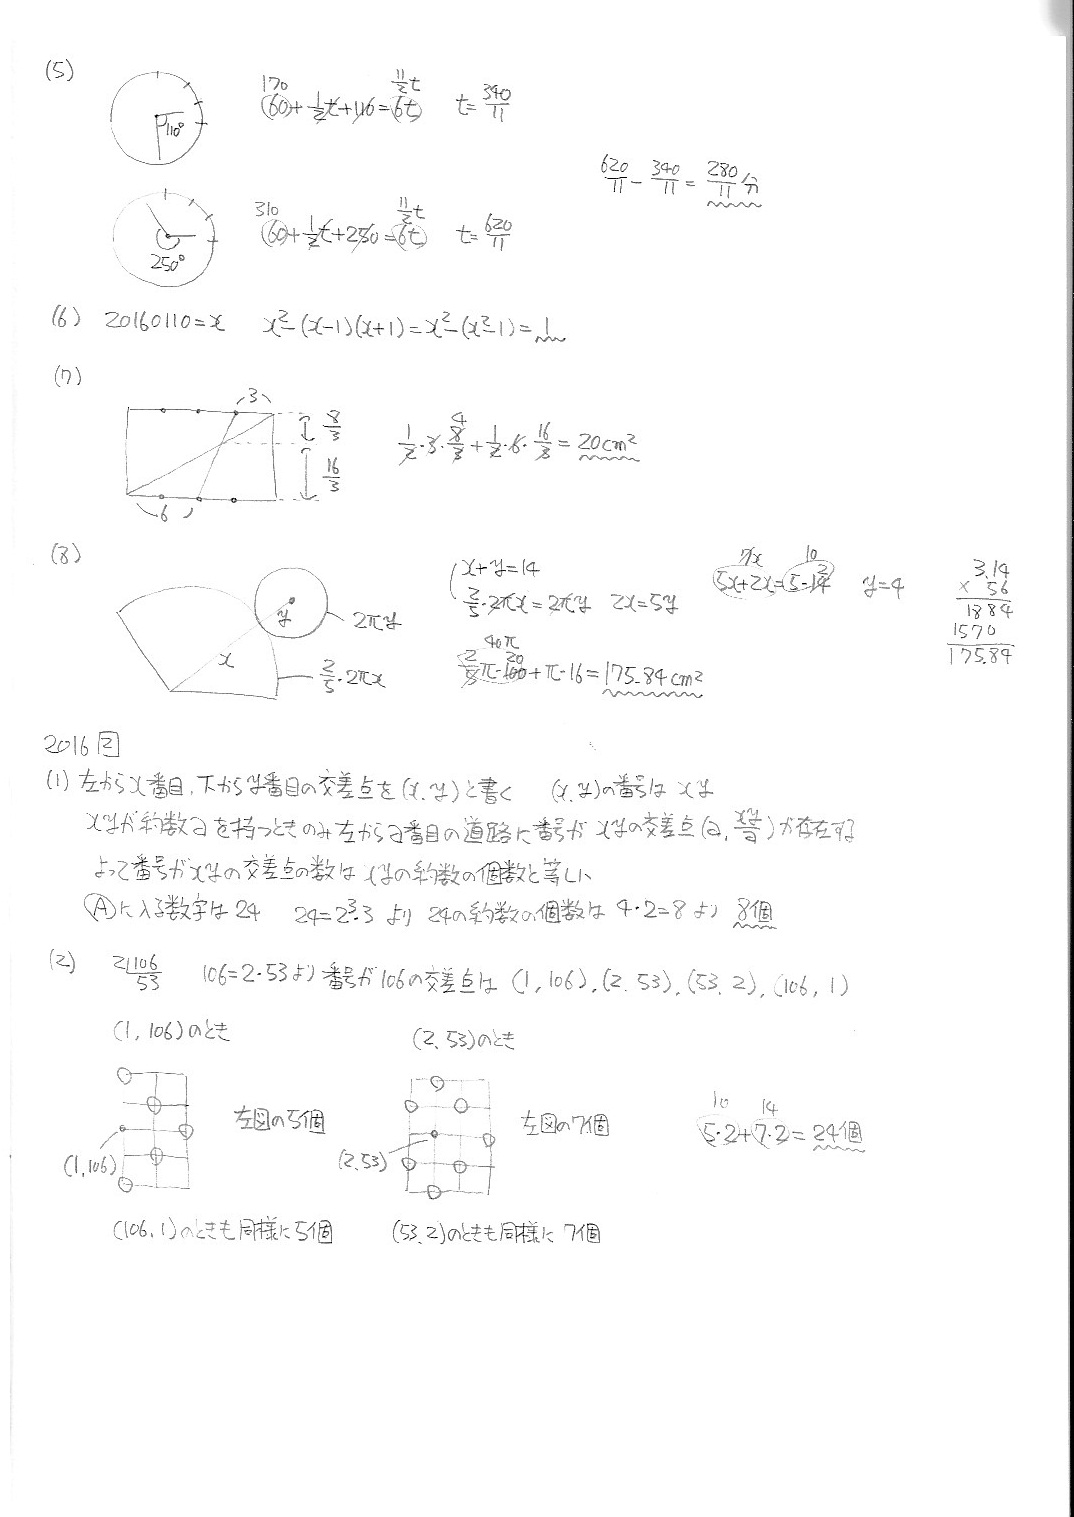 (5)
110°
170
11/2 t
60+1/2t+110=6t t=340/11
620/11-340/11=280/11分
250°
310
11/2 t
60+1/2t+250=6t t=620/11
(6) 20160110=x x²-(x-1)(x+1)=x²-(x²-1)=1
(7)
3
8/3
16/3
6
4
1/2・3・8/3+1/2・6・16/3=20cm²
(8)
x
y
2πy
2/5・2πx
x+y=14
2/5・2πx=2πy 2x=5y
7x 10 2
5x+2x=5・14 y=4
40π
20
2/5π・100+π・16=175.84cm²
3.14
× 56
1884
1570
175.84
2016 2
(1) 左からx番目、下からy番目の交差点を(x,y)と書く (x,y)の番号はxy
xyが約数aを持つときのみ左からa番目の道路に番号がxyの交差点(a, xy/a)が存在する
よって番号がxyの交差点の数はxyの約数の個数と等しい
Aに入る数字は24 24=2³・3より 24の約数の個数は 4・2=8より 8個
(2) 2)106
53
106=2・53より番号が106の交差点は (1,106),(2,53),(53,2),(106,1)
(1,106)のとき
(2,53)のとき
(1,106)
左図の5個
(2,53)
左図の7個
10 14
5・2+7・2=24個
(106,1)のときも同様に5個
(53,2)のときも同様に7個